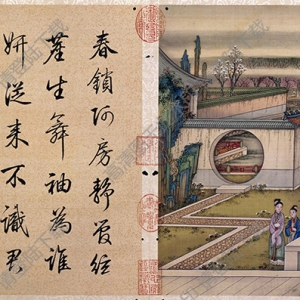 春鎖阿房靜管絃
塵生舞袖為誰
妍從來不識君